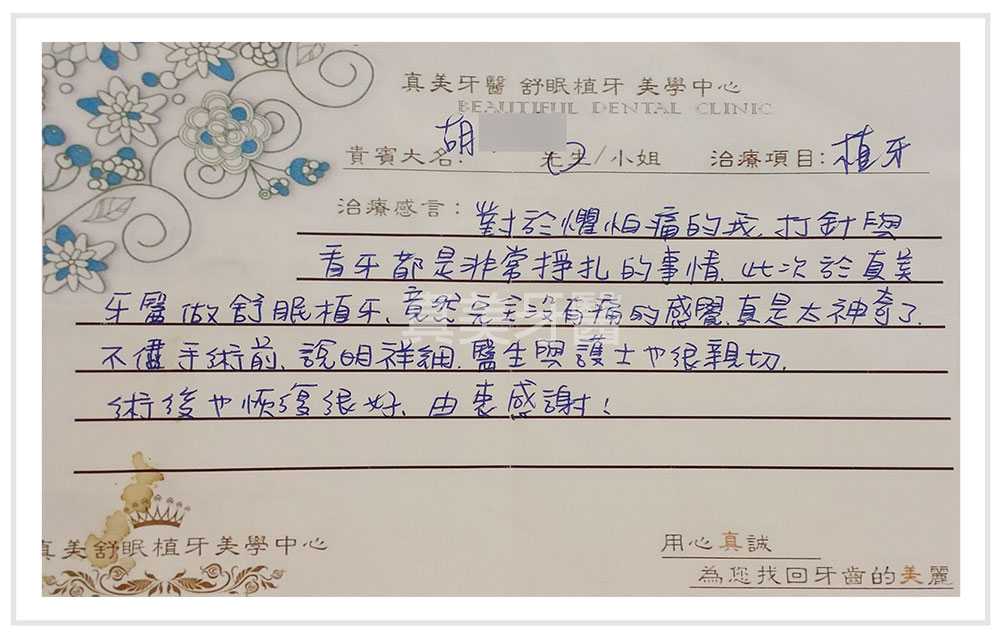 真美牙醫 舒眠植牙 美學中心
BEAUTIFUL DENTAL CLINIC
貴賓大名：胡 先生/小姐 治療項目：植牙
治療感言：對於懼怕痛的我，打針與
看牙都是非常掙扎的事情，此次於真美
牙醫做舒眠植牙，竟然完全沒有痛的感覺，真是太神奇了，
不儘手術前，說明祥細，醫生與護士也很親切，
術後也恢復很好，由衷感謝！
真美牙醫
真美舒眠植牙美學中心
用心真誠
為您找回牙齒的美麗